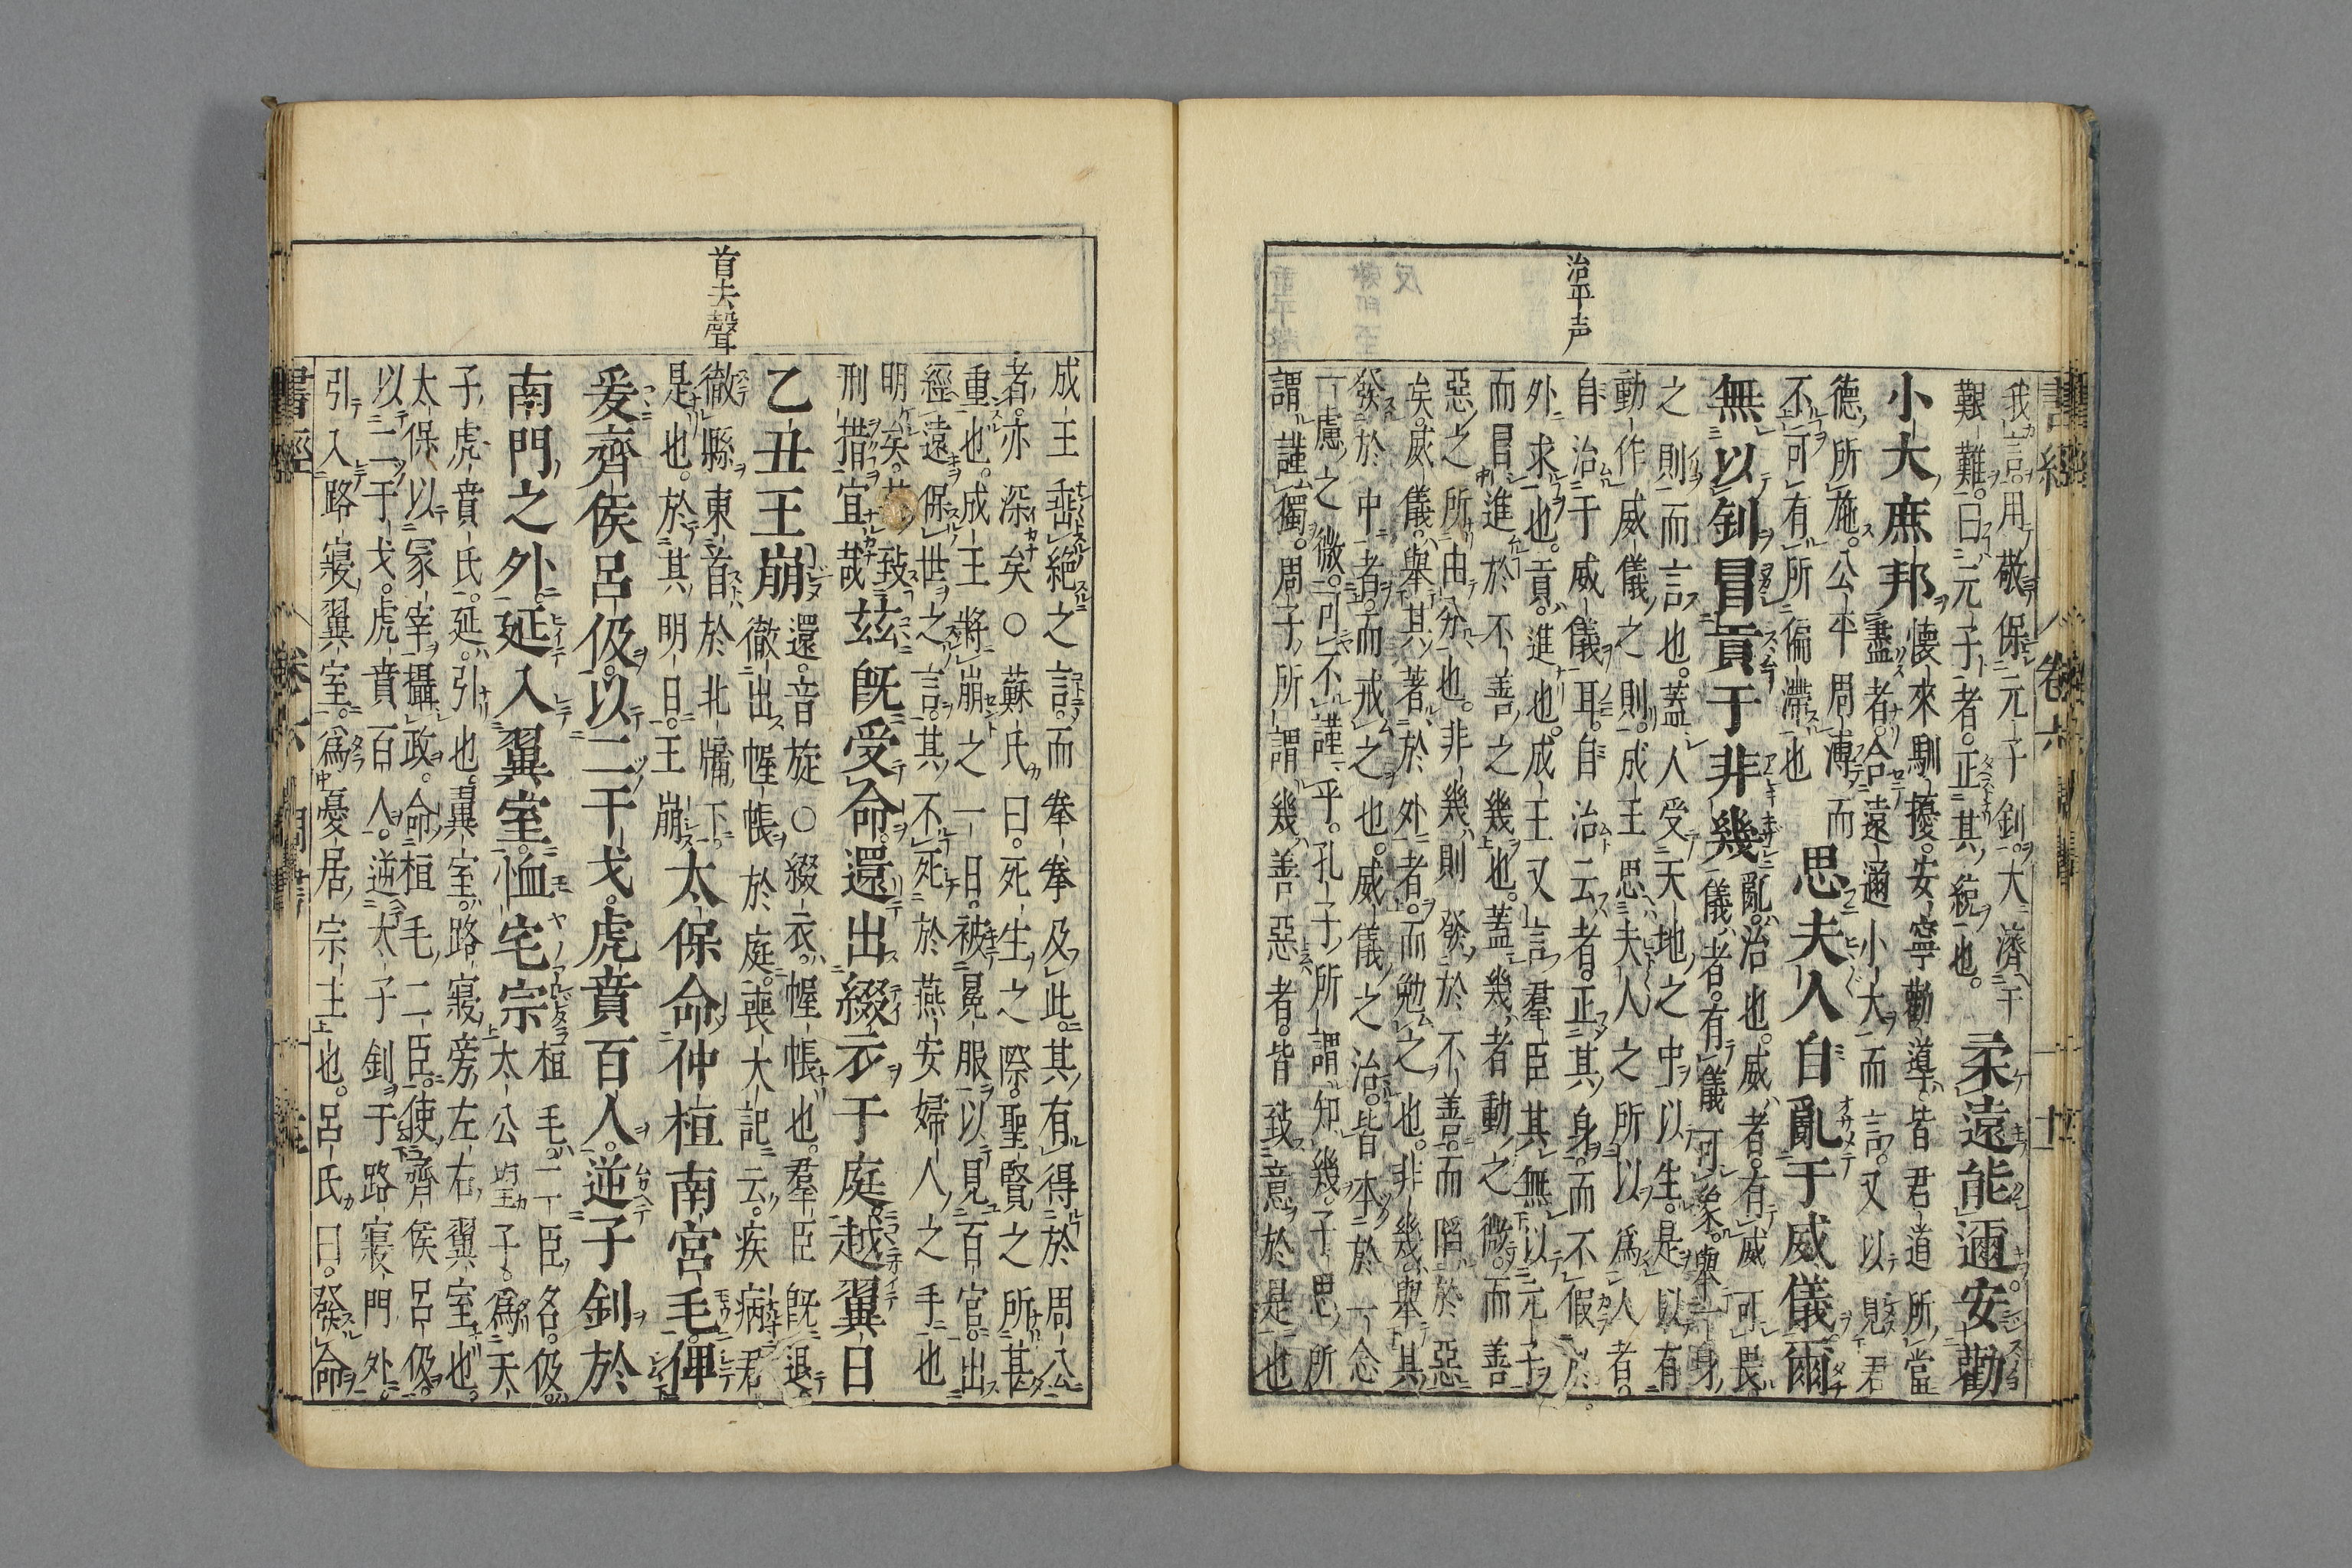 治平声
我言用敬保元子釗。大濟于
艱難。曰元子者。正其統也。
柔遠能邇安勸
小大庶邦
懷來馴擾。安寧勸導。皆君道所當
盡者。合遠邇小大而言。又以見君
德所施。公平周溥而
不可有所偏滯也
思夫人自亂于威儀爾
無以釗冒貢于非幾
亂。治也。威者。有威可畏
儀者。有儀可象。舉一身
之則而言也。蓋人受天地之中以生。是以有
動作威儀之則。成王思夫人之所以爲人者。
自治于威儀耳。自治云者。正其身。而不假於
外求也。貢。進也。成王又言羣臣其無以元子
而冒進於不善之幾也。蓋幾者動之微。而善
惡之所由分也。非幾則發於不善。而陷於惡
矣。威儀。舉其著於外者。而勉之也。非幾。舉其
發於中者。而戒之也。威儀之治。皆本於一念
一慮之微。可不謹乎。孔子所謂知幾。子思所
謂謹獨。周子所謂幾善惡者。皆致意於是也
首去聲
成王垂絕之言。而拳拳及此。其有得於周公
者。亦深矣○蘇氏曰。死生之際。聖賢之所甚
重也。成王將崩之一日。被冕服。以見百官。出
經遠保世之言。其不死於燕安婦人之手也
明矣。其致
刑措宜哉
茲既受命還出綴衣于庭。越翼日
乙丑王崩
還。音旋○綴衣。幄帳也。羣臣既退
徹出幄帳於庭。喪大記云。疾病君
徹縣東首於北牖下
是也。於其明日。王崩
太保命仲桓南宮毛俾
爰齊侯呂伋。以二干戈。虎賁百人。逆子釗於
南門之外。延入翼室。恤宅宗
桓毛。二臣名。伋。
太公望子。爲天
子虎賁氏。延。引也。翼室。路寢旁左右翼室也。
太保以冢宰攝政。命桓毛二臣。使齊侯呂伋。
以二干戈。虎賁百人。逆太子釗于路寢門外。
引入路寢翼室。爲憂居宗主也。呂氏曰。發命
書經